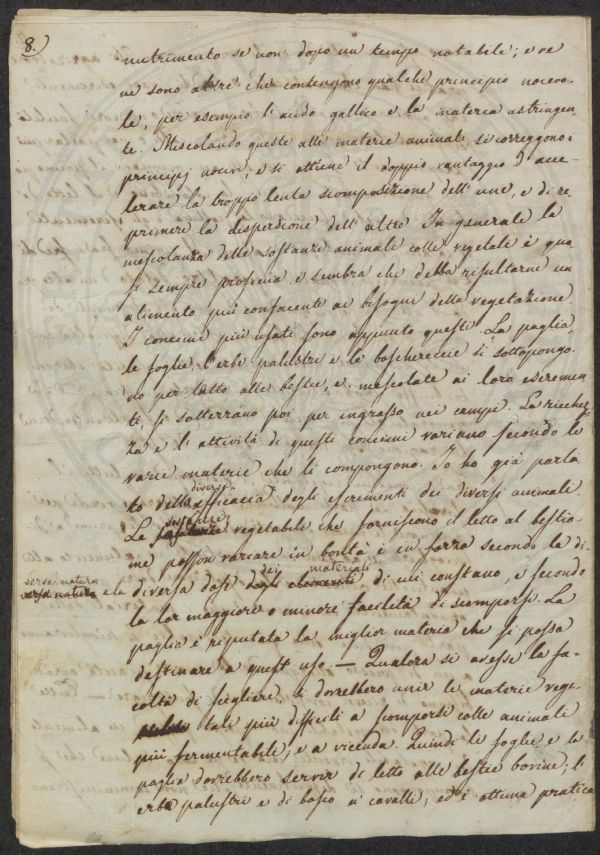 8.)
nutrimento se non dopo un tempo notabile; e ve
ne sono altre che contengono qualche principio nocevo-
le, per esempio l'acido gallico e la materia astringen
te. Miscolando queste alle materie animali si correggono i
principj nocivi, e si ottiene il doppio vantaggio d'acce-
lerare la troppo lenta scomposizione dell'une, e di re
primere la dispersione dell'altre. In generale la
mescolanza delle sostanze animali colle vegetali è qua
si sempre proficua e sembra che debba risultarne un
alimento più confacente ai bisogni della vegetazione.
I concimi più usati sono appunto questi. La paglia,
le foglie, l'erbe palustri e le boscherecce si sottopongo
no per letto alle bestie, e, mescolate ai loro escremen
ti, si sotterrano poi per ingrasso nei campi. La ricchez
za e l'attività di questi concimi variano secondo le
varie materie che li compongono. Io ho già parla
diversa
to della efficacia degli escrementi dei diversi animali.
sostanze
Le vegetabili che forniscono il letto al bestia-
me posson variare in bontà e in forza secondo la di
versa natura
dei materiali
e la diversa dose degli elementi di cui constano, e secondo
la lor maggiore o minore facilità di scomporsi. La
paglia è riputata la miglior materia che si possa
destinare a quest'uso — Qualora si avesse la fa-
coltà di scegliere si dovrebbero unir le materie vege-
tali più difficili a scomporsi colle animali
più fermentabili, e a vicenda. Quindi le foglie e la
paglia dovrebbero servir di letto alle bestie bovine; l'
erbe palustri e di bosco a' cavalli; ed è ottima pratica